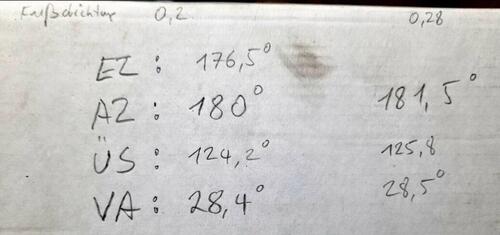 Fußdichtung 0,2 0,28
EZ: 176,5°
AZ: 180° 181,5°
ÜS: 124,2° 125,8
VA: 28,4° 28,5°